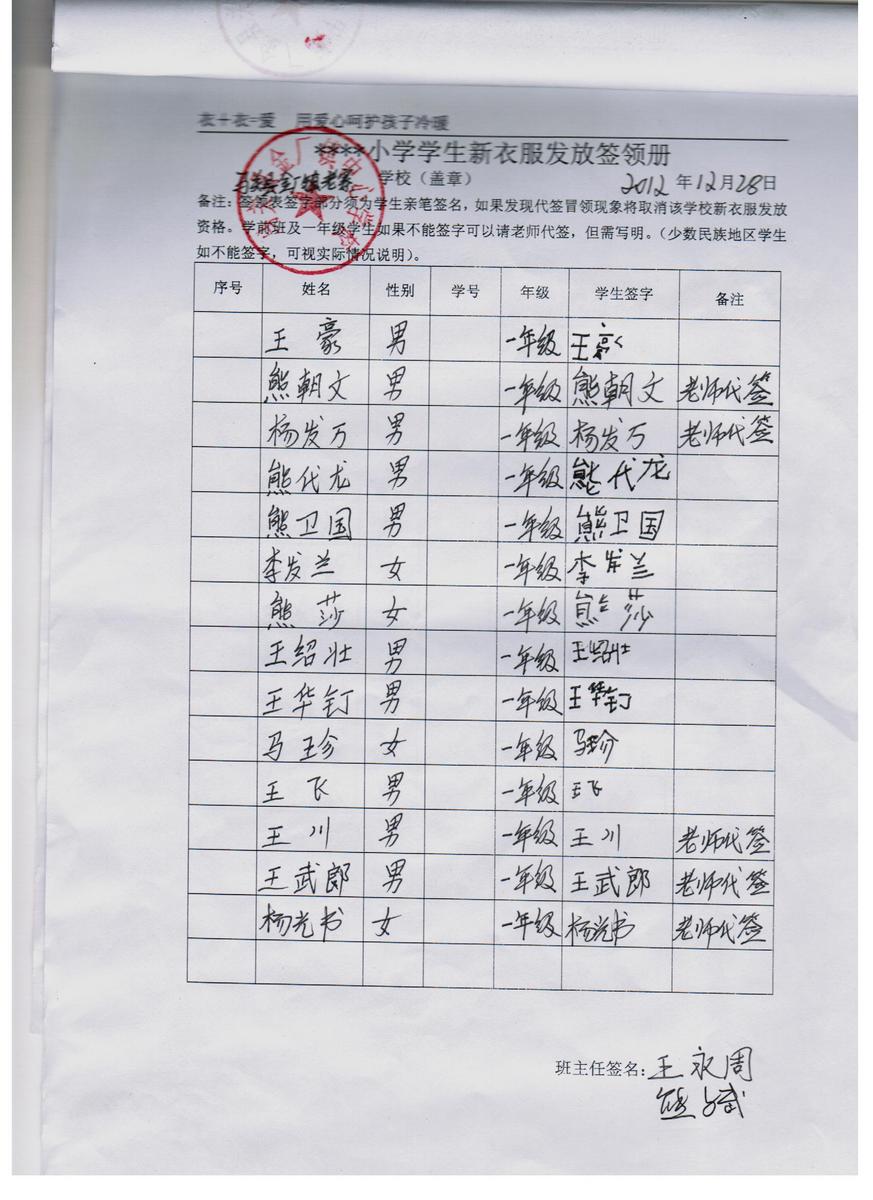 衣+衣=爱 用爱心呵护孩子冷暖
****小学学生新衣服发放签领册
学校（盖章） 2012年12月28日
备注：签领表签字部分须为学生亲笔签名，如果发现代签冒领现象将取消该学校新衣服发放
资格。学前班及一年级学生如果不能签字可以请老师代签，但需写明。（少数民族地区学生
如不能签字，可视实际情况说明）。
序号 姓名 性别 学号 年级 学生签字 备注
王豪 男 一年级 王豪
熊朝文 男 一年级 熊朝文 老师代签
杨发万 男 一年级 杨发万 老师代签
熊代龙 男 一年级 熊代龙
熊卫国 男 一年级 熊卫国
李发兰 女 一年级 李发兰
熊莎 女 一年级 熊莎
王绍壮 男 一年级 王绍壮
王华钉 男 一年级 王华钉
马玉珍 女 一年级
王飞 男 一年级 王飞
王川 男 一年级 王川 老师代签
王武郎 男 一年级 王武郎 老师代签
杨光书 女 一年级 杨光书 老师代签
班主任签名：王永周